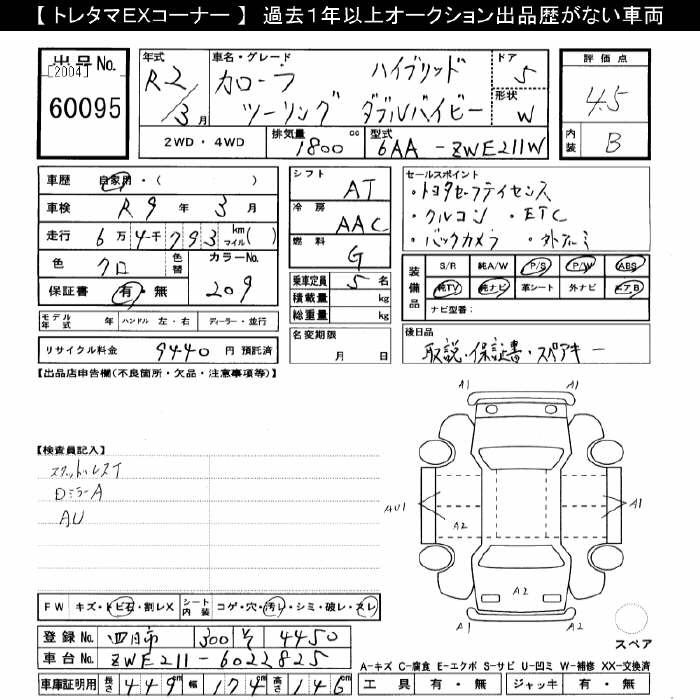 【 トレタマEXコーナー 】 過去1年以上オークション出品歴がない車両
出品No.
[2004]
60095
年式 R2/3月
車名・グレード カローラ ハイブリッド
ツーリング ダブルバイビー
ドア 5
形状 W
2WD・4WD
排気量 1800 cc
型式 6AA-ZWE211W
評価点
4.5
内装 B
車歴 自家用・( )
車検 R9年3月
走行 6万4千793 km マイル( )
色 クロ 色替 カラーNo. 209
保証書 有・無
モデル年式 年 ハンドル 左・右 ディーラー・並行
リサイクル料金 9440 円 預託済
シフト AT
冷房 AAC
燃料 G
乗車定員 5 名
積載量 kg
総重量 kg
名変期限 月 日
セールスポイント
・トヨタセーフティセンス
・クルコン ・ETC
・バックカメラ ・
装備品
S/R 純A/W P/S P/W ABS
純TV 純ナビ 革シート 外ナビ エアB
ナビ型番:
後日品
取説・保証書・スペアキー
【出品店申告欄(不良箇所・欠品・注意事項等)】
【検査員記入】
DミラーA
AU
A1
A1
AU1
A1
A2
A2
A1
A1
スペア
FW キズ・トビ石・割レX シート内装 コゲ・穴・汚レ・シミ・破レ・スレ
登録No. 四日市 300 4450
車台No. ZWE211-6022825
車庫証明用 長さ 449 cm 幅 174 cm 高さ 146 cm
A-キズ C-腐食 E-エクボ S-サビ U-凹ミ W-補修 XX-交換済
工具 有・無 ジャッキ 有・無